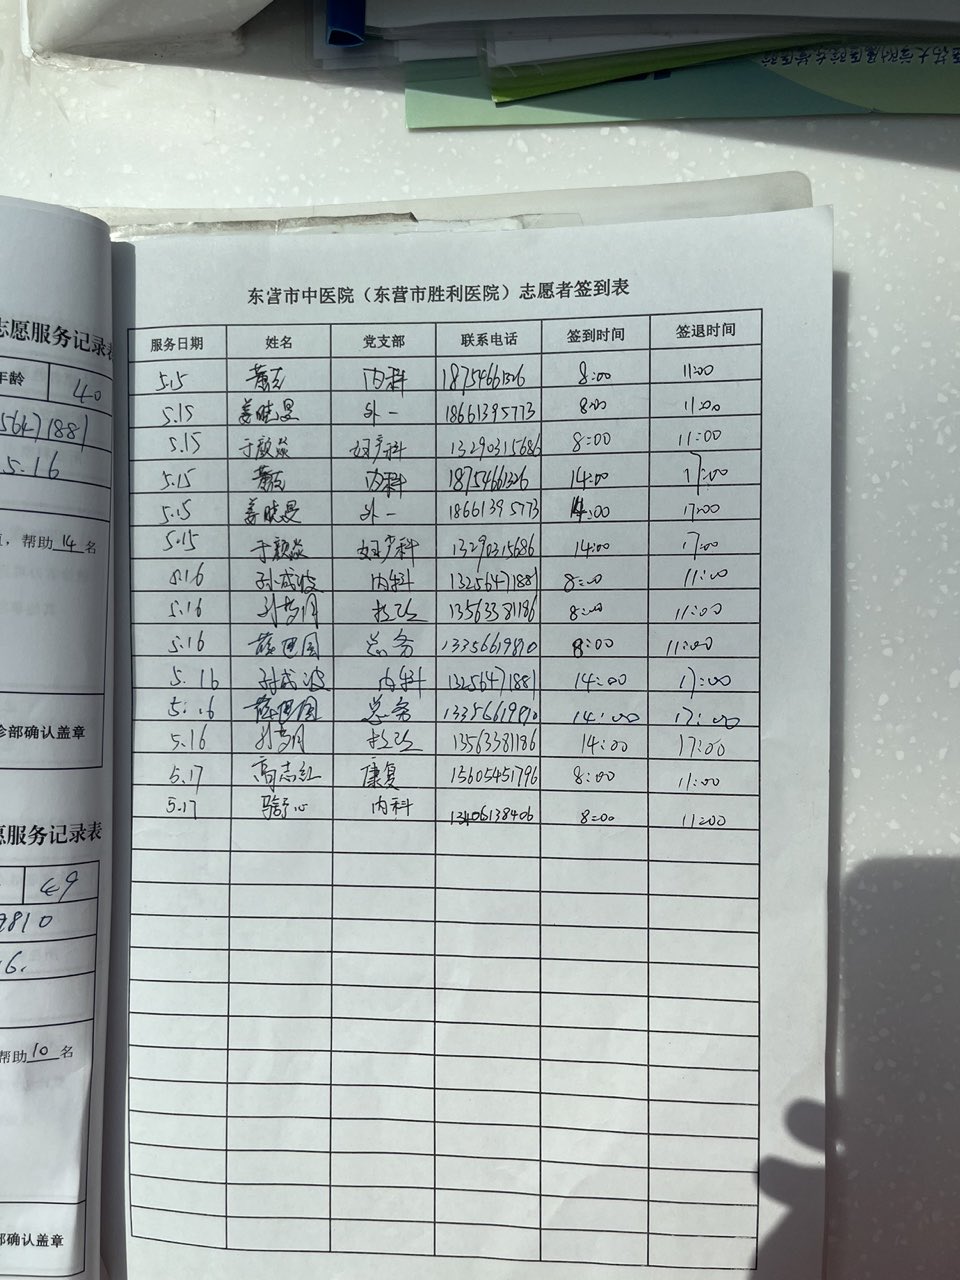 医药大学附属医院东营医院
志愿服务记录表
年龄 40
56471881
5.16
, 帮助 14 名
诊部确认盖章
愿服务记录表
49
9810
6.
帮助 10 名
部确认盖章
东营市中医院（东营市胜利医院）志愿者签到表
服务日期 姓名 党支部 联系电话 签到时间 签退时间
5.15 内科 18754661326 8:00 11:00
5.15 姜晓昱 外一 18661395773 8:00 11:00
5.15 于颜焱 妇产科 13290315686 8:00 11:00
5.15 内科 18754661326 14:00 17:00
5.15 姜晓昱 外一 18661395773 14:00 17:00
5.15 于颜焱 妇产科 13290315686 14:00 17:00
5.16 孙成波 内科 13256471881 8:00 11:00
5.16 孙梦月 13563381186 8:00 11:00
5.16 薛卫国 总务 13356619810 8:00 11:00
5.16 孙成波 内科 13256471881 14:00 17:00
5.16 薛卫国 总务 13356619810 14:00 17:00
5.16 孙梦月 13563381186 14:00 17:00
5.17 高志红 康复 15605451796 8:00 11:00
5.17 内科 13406138406 8:00 11:00